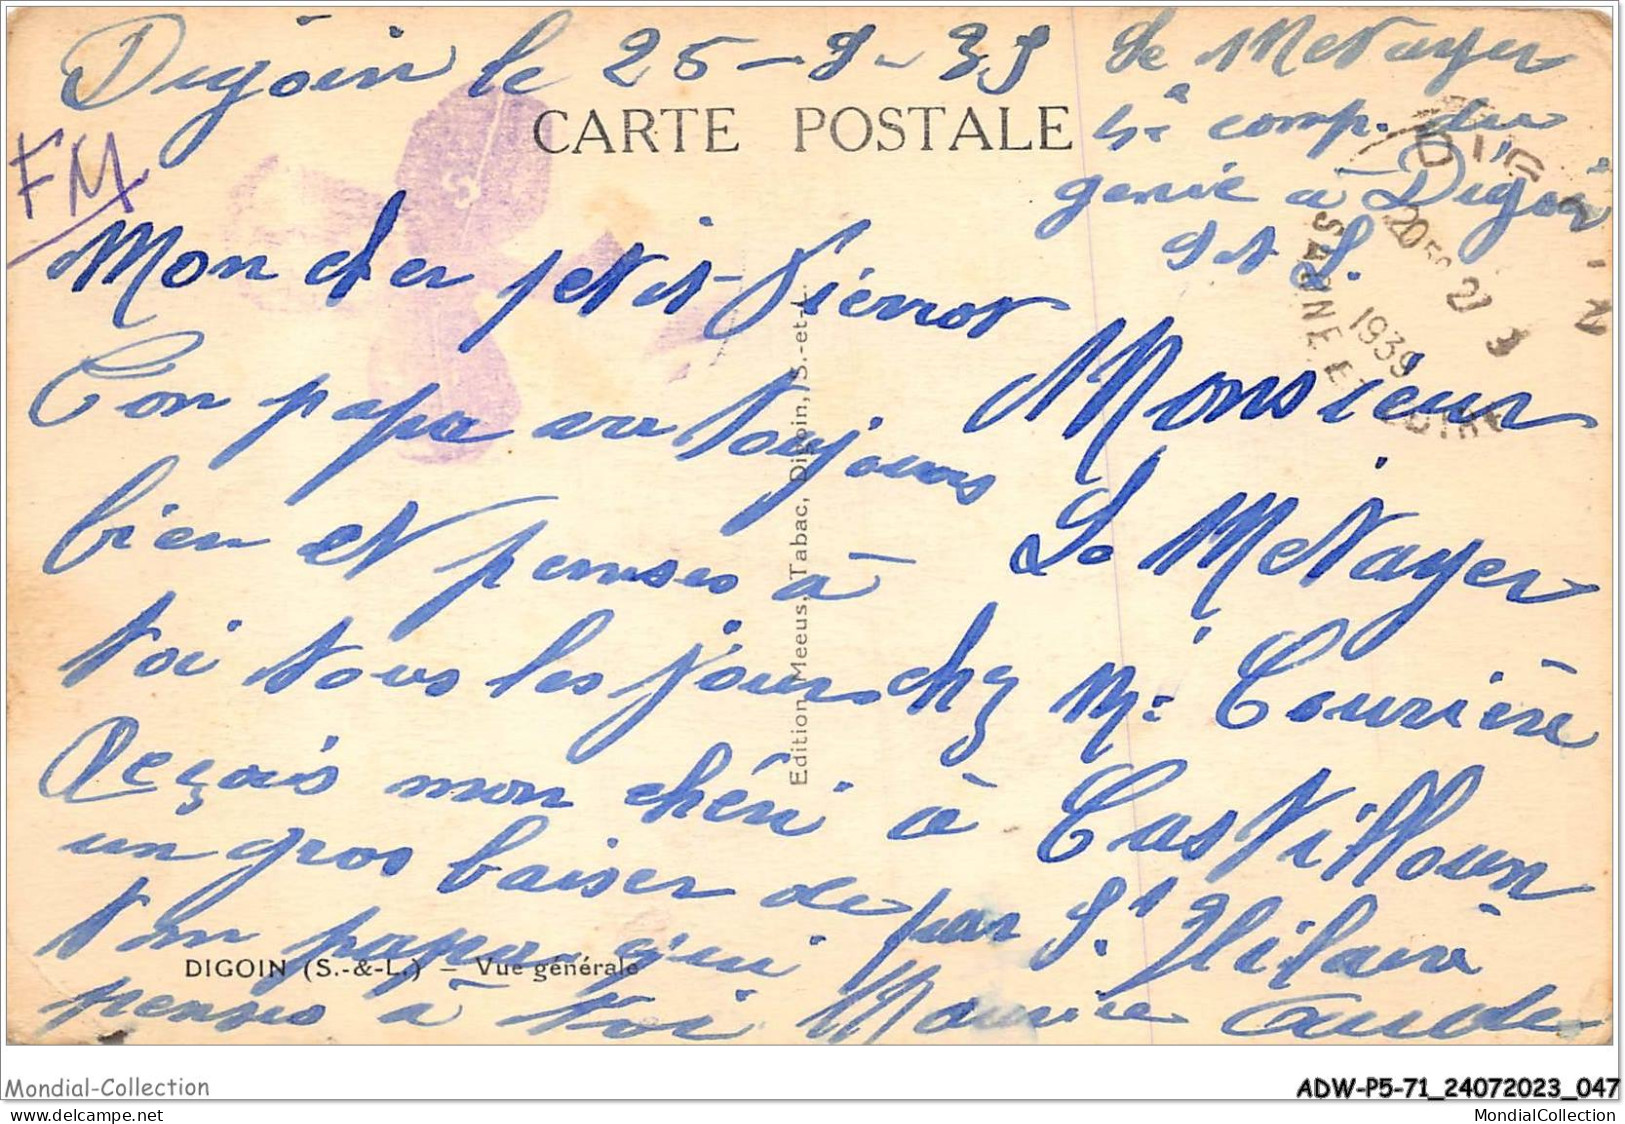 Digoin le 25-9-39
Le Metayer
4e comp. du
genie à Digoin
S et L.
CARTE POSTALE
FM
DIGOIN
20 50
27 9
1939
SAONE ET LOIRE
Mon cher petit Pierrot
Ton papa va toujours
bien et penses à
toi tous les jours
Reçois mon chéri
un gros baiser de
ton papa qui
penses à toi Maurice
Monsieur
Le Metayer
chz Mr Courière
à Castilloun
par St Hilaire
Aude
Edition Meeus, Tabac, Digoin, S.-et-L.
DIGOIN (S.-&-L.) — Vue générale
Mondial-Collection
ADW-P5-71_24072023_047
delcampe.net
MondialCollection